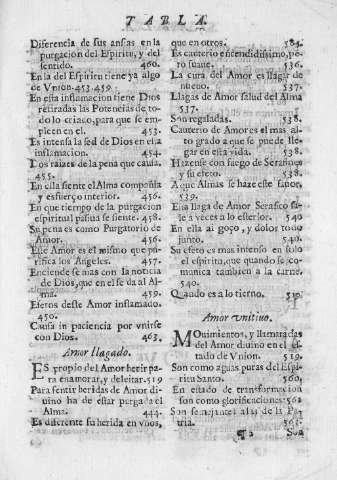 TABLA.
Diferencia de sus ansias en la
purgacion del Espiritu, y del
sentido. 460.
En la del Espiritu tiene ya algo
de Vnion. 453. 459.
En esta inflamacion tiene Dios
retiradas las Potencias de to-
do lo criado, para que se em-
pleen en el. 453.
Es intensa la sed de Dios en esta
inflamacion. 454.
Dos raizes de la pena que causa.
455.
En ella siente el Alma compañia
y esfuerço interior. 456.
En que tiempo de la purgacion
espiritual passiua se siente. 458.
Su pena es como Purgatorio de
Amor. 456.
Este Amor es el mismo que pu-
rifica los Angeles. 457.
Enciende se mas con la noticia
de Dios, que en el se da al Al-
ma. 459.
Efetos deste Amor inflamado.
450.
Causa in paciencia por vnirse
con Dios. 463.
Amor llagado.
ES propio del Amor herir pa-
ra enamorar, y deleitar. 519
Para sentir heridas de Amor di-
uino ha de estar purgada el
Alma. 444.
Es diferente su herida en vnos,
que en otros. 584.
Es cauterio encendidissimo, pe-
ro suaue. 536.
La cura del Amor es llagar de
nueuo. 537.
Llagas de Amor salud del Alma
537.
Son regaladas. 538.
Cauterio de Amor es el mas al-
to grado a que se puede lle-
gar en esta vida. 538.
Hizense con fuego de Serafines
y su efeto. 538.
A que Almas se haze este fauor,
539.
Esta llaga de Amor Serafico sa-
le a veces a lo esterior. 540
En ella ai goço, y dolor todo
junto. 540.
Su efeto es mas intenso en solo
el espiritu, que quando se co-
munica tambien a la carne.
540.
Quando es a lo tierno. 510.
Amor vnitiuo.
MOuimientos, y llamaradas
del Amor diuino en el es-
tado de Vnion. 519.
Son como aguas puras del Espi-
ritu Santo. 560,
En estado de transformacion
son como glorificaciones. 561
Son semejantes a las de la Pa-
tria. 561.
Son